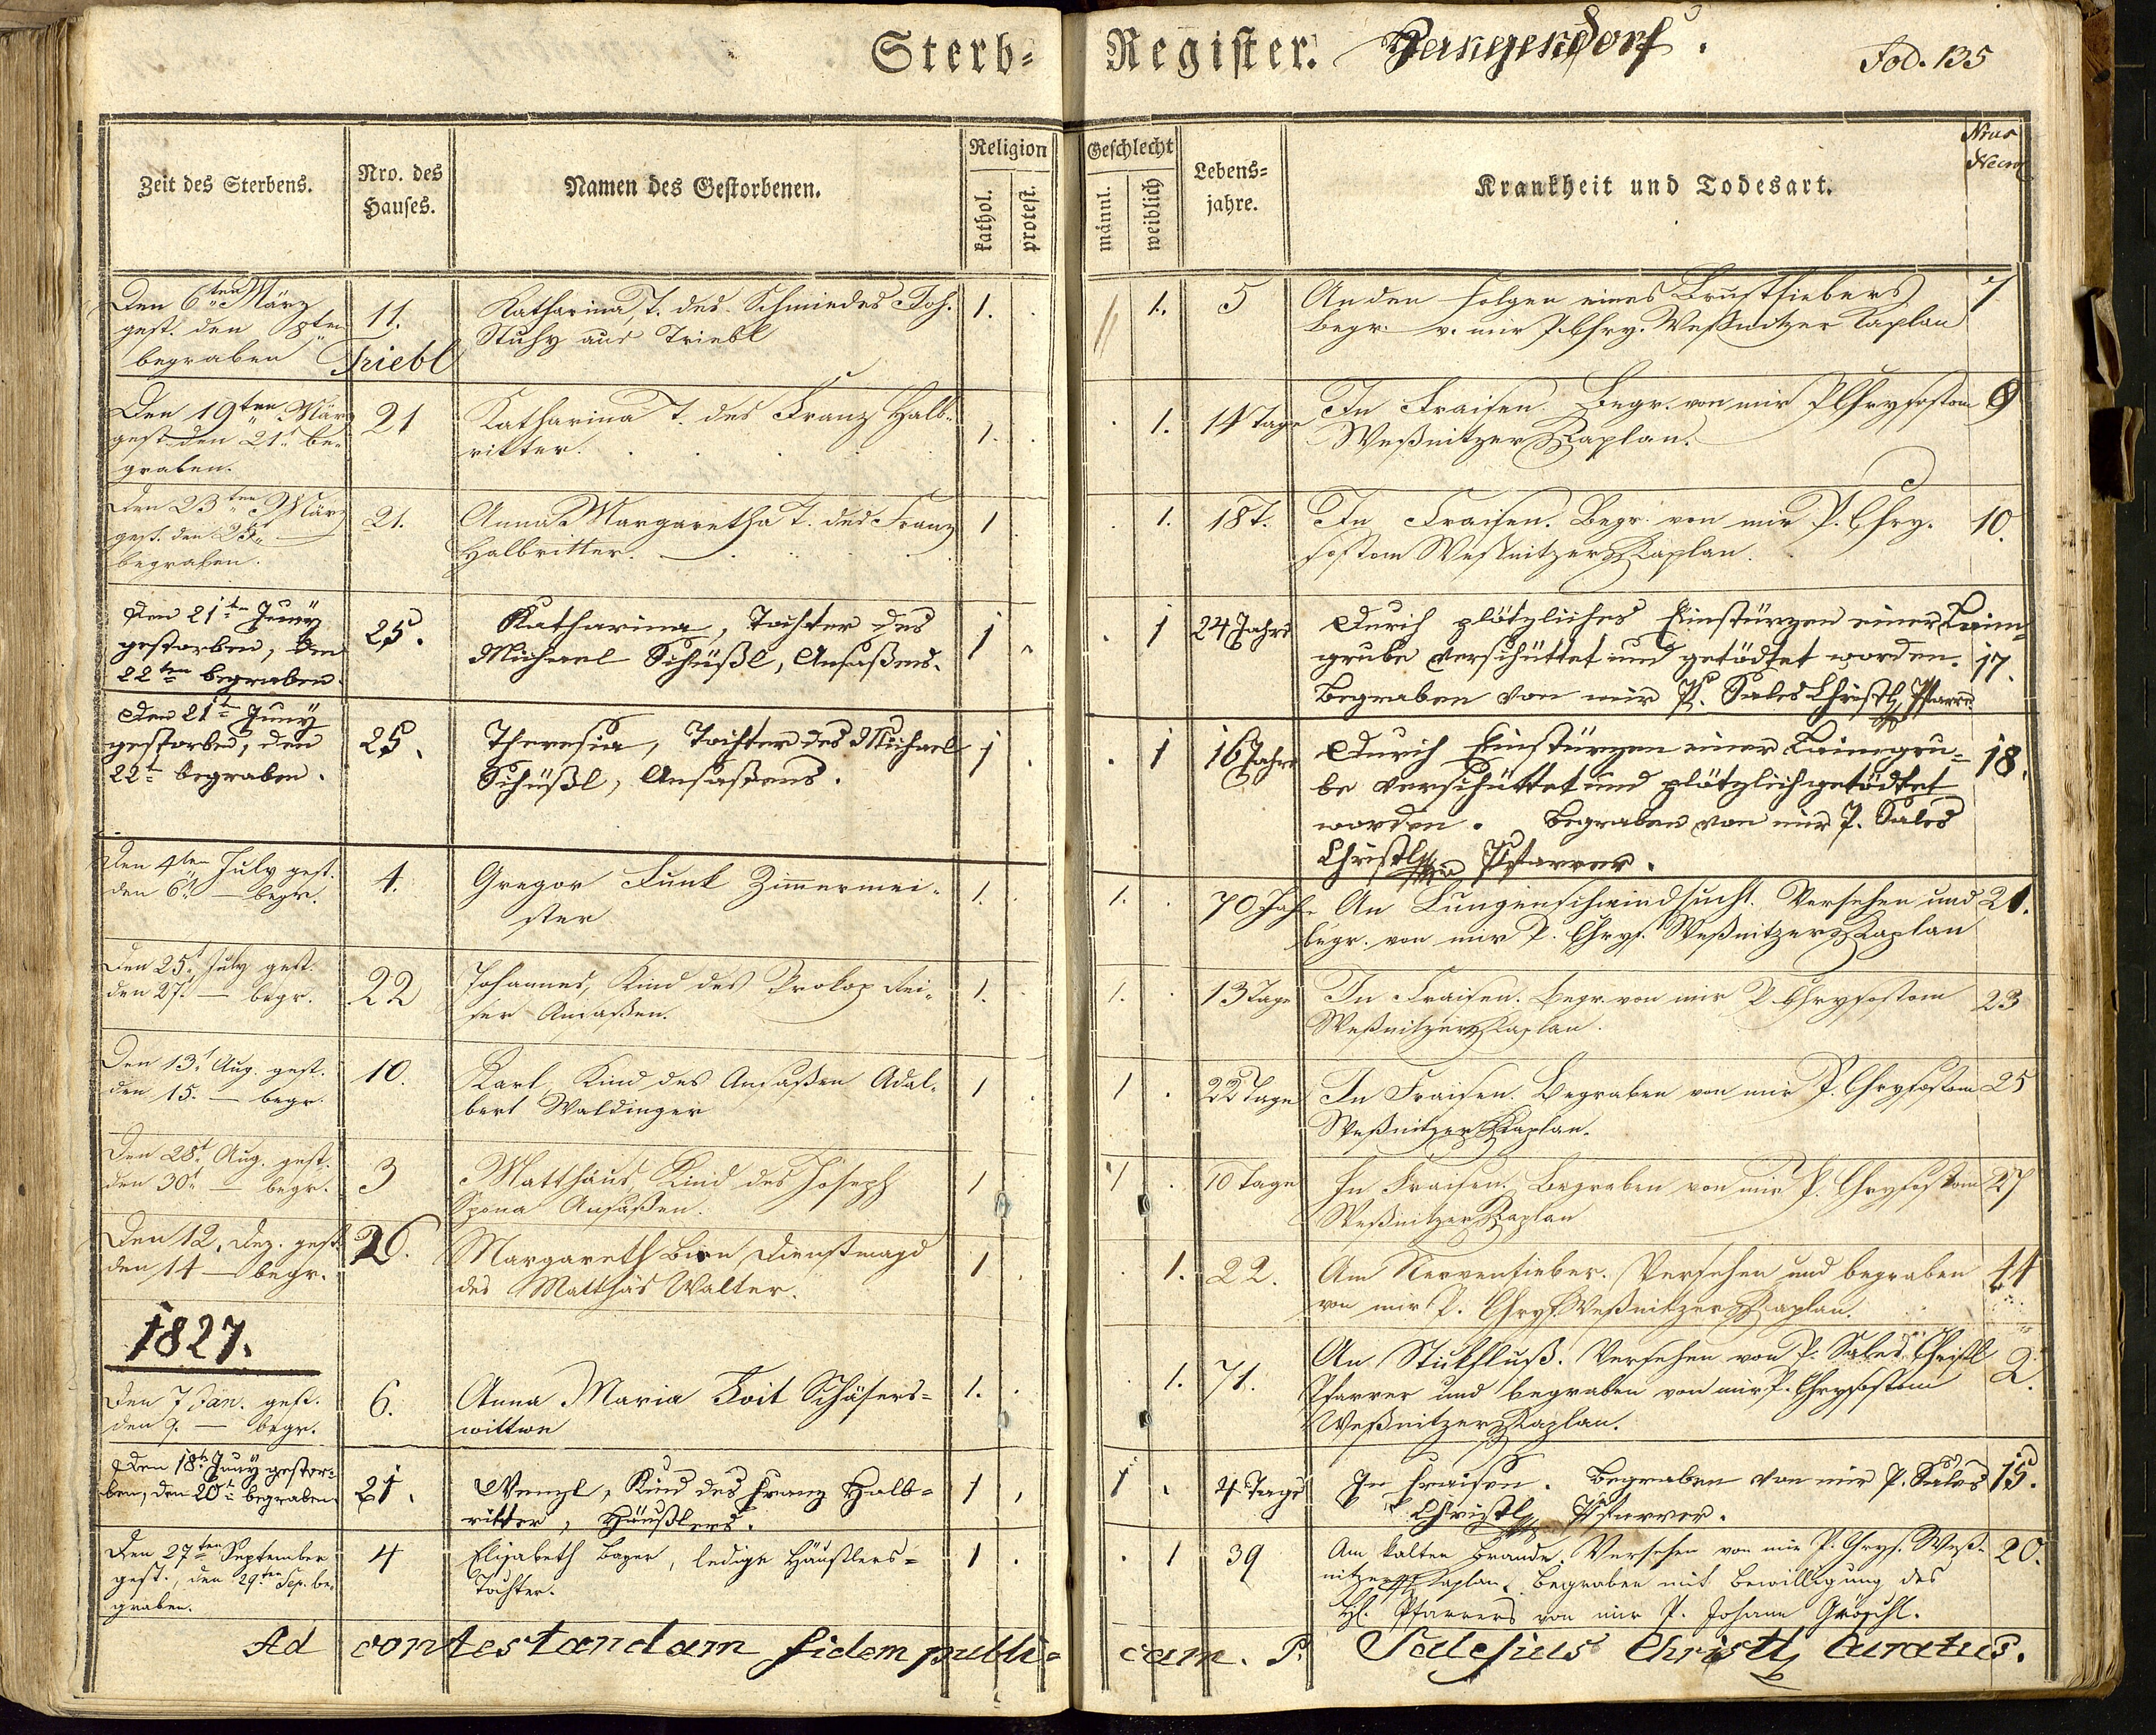 Sterb- Register. Hangendorf.
Fod. 135
Zeit des Sterbens.
Nro. des Hauses.
Namen des Gestorbenen.
Religion
kathol.
protest.
Geschlecht
männl.
weiblich
Lebens-
jahre.
Krankheit und Todesart.
Nrus
Den 6ten März
gest. den 8ten
begraben
11.
Triebl
Katharina, T. des Schmiedes Joh.
Stuhy aus Triebl
1. .
1.
5
An den Folgen eines Brustfiebers
Begr. v. mir P. Chry. Weßnitzer Kaplan
7
Den 19ten März
gest. den 21t be-
graben.
21
Katharina T. des Franz Halb-
ritter.
1. .
. 1.
14 Tage
In Fraisen. Begr. von mir P Chrysostom
Weßnitzer Kaplan.
9
Den 23ten März
gest. den 25t
begraben.
21.
Anna Margaretha T. des Franz
Halbritter.
1 .
. 1.
18 t.
In Fraisen. Begr. von mir P. Chry-
sostom Weßnitzer Kaplan.
10.
Den 21ten Juny
gestorben, den
22ten begraben.
25.
Katharina, Tochter des
Michael Schüßl, Ansaßens.
1 .
. 1
24 Jahre
Durch plötzliches Einstürzen einer Laim-
grube verschüttet und getödtet worden.
Begraben von mir P. Sales Christl, Pfarrer
17.
Den 21t Juny
gestorben, den
22t begraben.
25.
Theresia, Tochter des Michael
Schüßl, Ansaßens.
1 .
. 1
16 Jahre
Durch Einstürzen einer Laimgru-
be verschüttet und plötzlich getödtet
worden. Begraben von mir P. Sales
Christl Pfarrer.
18.
Den 4ten July gest.
den 6t — begr.
4.
Gregor Funk Zimmermei-
ster
1. .
1. .
70 Jahre
An Lungenschwindsucht. Versehen und
begr. von mir P. Chrys. Weßnitzer Kaplan
21.
Den 25t July gest.
den 27t — begr.
22
Johannes, Kind des Prokop Rei-
ser Ansaßen.
1. .
1. .
13 Tage
In Fraisen. Begr. von mir P. Chrysostom
Weßnitzer Kaplan.
23
Den 13t Aug. gest.
den 15. — begr.
10.
Karl, Kind des Ansaßen Adal-
bert Waldinger
1 .
1 .
22 Tage
In Fraisen. Begraben von mir P. Chrysostom
Weßnitzer Kaplan.
25
Den 28t Aug. gest.
den 30t — begr.
3
Matthäus, Kind des Joseph
Spona Ansaßen.
1
1 .
10 Tage
In Fraisen. Begraben von mir P. Chrysostom
Weßnitzer Kaplan
27
Den 12. Dez. gest.
den 14 — begr.
26.
Margareth Bion, Dienstmagd
des Matthäs Walter.
1 .
. 1.
22.
Am Nervenfieber. Versehen und begraben
von mir P. Chrys Weßnitzer Kaplan.
44
1827.
Den 7 Jan. gest.
den 9. — begr.
6.
Anna Maria Voit Schäfers-
wittwe
1. .
. 1.
71.
An Stickfluß. Versehen von P. Sales Christl
Pfarrer und begraben von mir P. Chrysostom
Weßnitzer Kaplan.
2.
Den 18t Juny gestor-
ben, den 20t begraben
21.
Wenzl, Kind des Franz Halb-
ritter, Häußlers.
1 .
1 .
4 Tage
In Fraisen. Begraben von mir P. Sales
Christl, Pfarrer.
15.
Den 27ten September
gest., den 29ten Sep. be-
graben.
4
Elisabeth Bayer, ledige Häuslers-
Tochter.
1 .
. 1
39
Am kalten Brande. Versehen von mir P. Chrys. Weß-
nitzer Kaplan, begraben mit Bewilligung des
H. Pfarrers von mir P. Johann Gröschl.
20.
Ad contestandam fidem publi-
cam. P. Salesius Christl, Curatus.